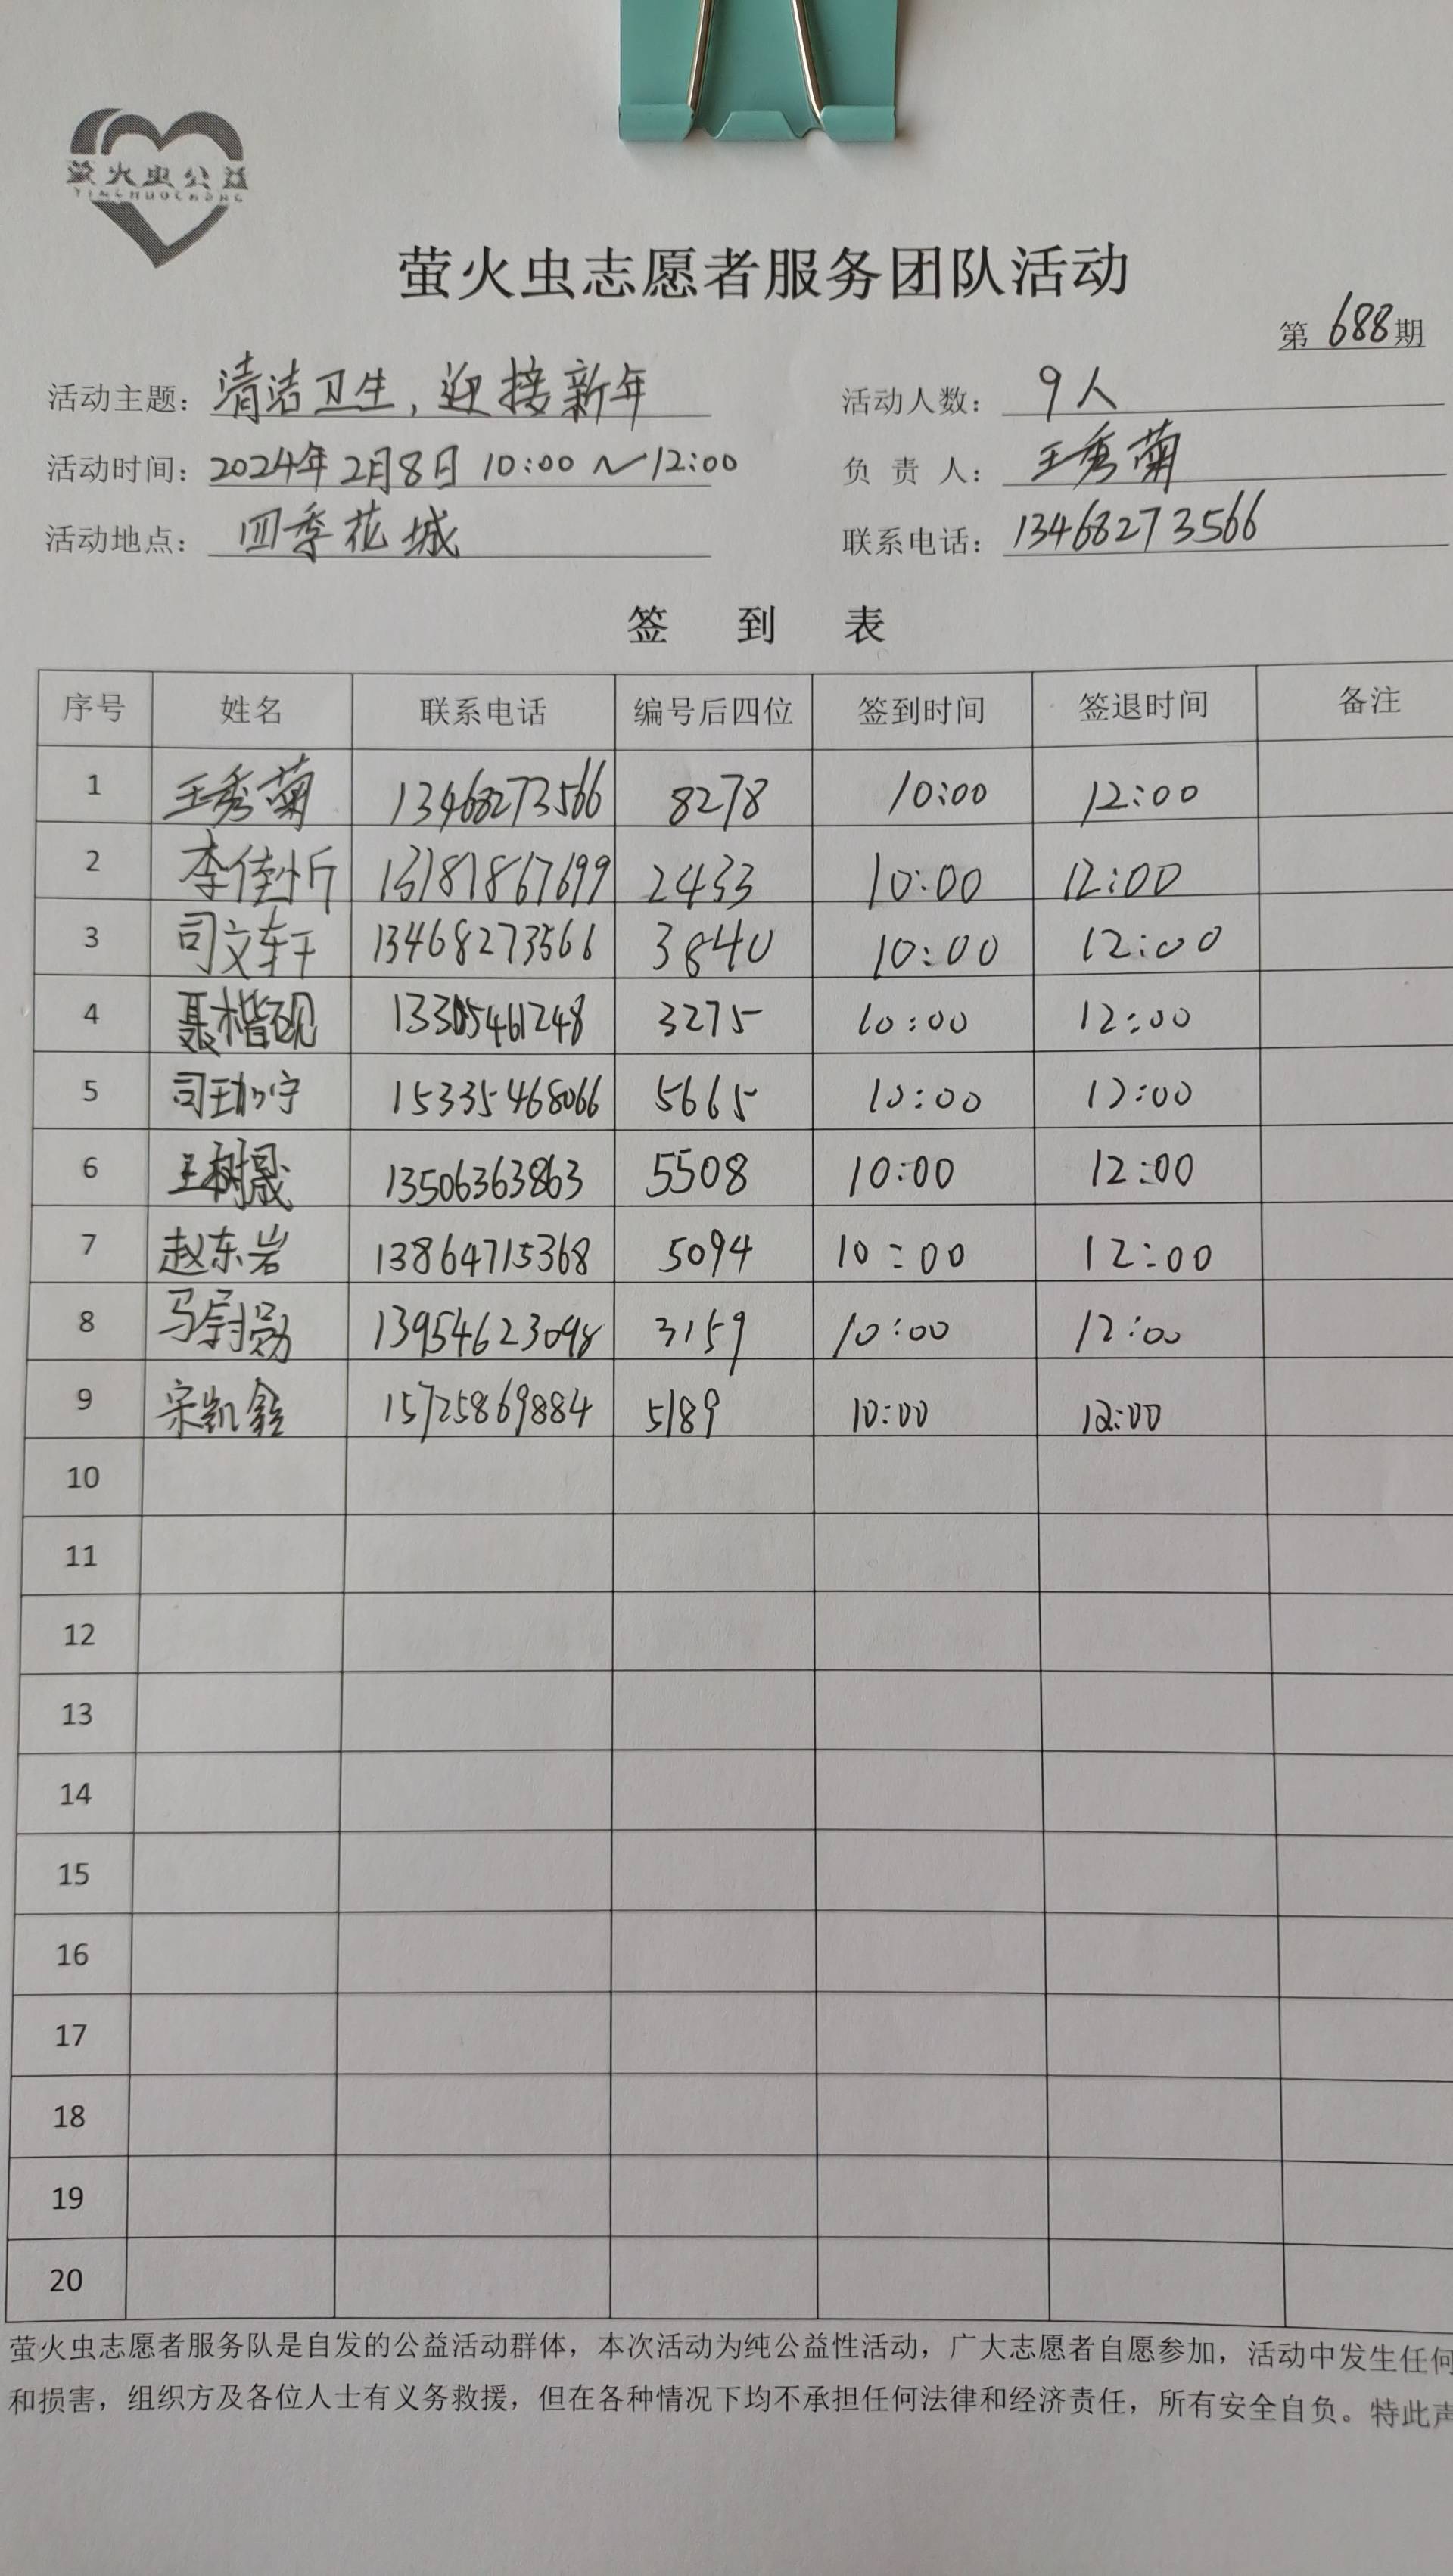 萤火虫公益
YINGHUOCHONG
萤火虫志愿者服务团队活动
第 688 期
活动主题：清洁卫生，迎接新年 活动人数：9人
活动时间：2024年2月8日 10:00～12:00 负责人：王秀菊
活动地点：四季花城 联系电话：13468273566
签 到 表
序号 姓名 联系电话 编号后四位 签到时间 签退时间 备注
1 王秀菊 13468273566 8278 10:00 12:00
2 李佳忻 13181867699 2433 10:00 12:00
3 司文轩 13468273566 3840 10:00 12:00
4 聂楷砚 13305461248 3275 10:00 12:00
5 司珈宁 15335468066 5665 10:00 12:00
6 王树晟 13506363863 5508 10:00 12:00
7 赵东岩 13864715368 5094 10:00 12:00
8 马尉勋 13954623098 3159 10:00 12:00
9 宋凯鑫 15725869884 5189 10:00 12:00
10
11
12
13
14
15
16
17
18
19
20
萤火虫志愿者服务队是自发的公益活动群体，本次活动为纯公益性活动，广大志愿者自愿参加，活动中发生任何
和损害，组织方及各位人士有义务救援，但在各种情况下均不承担任何法律和经济责任，所有安全自负。特此声